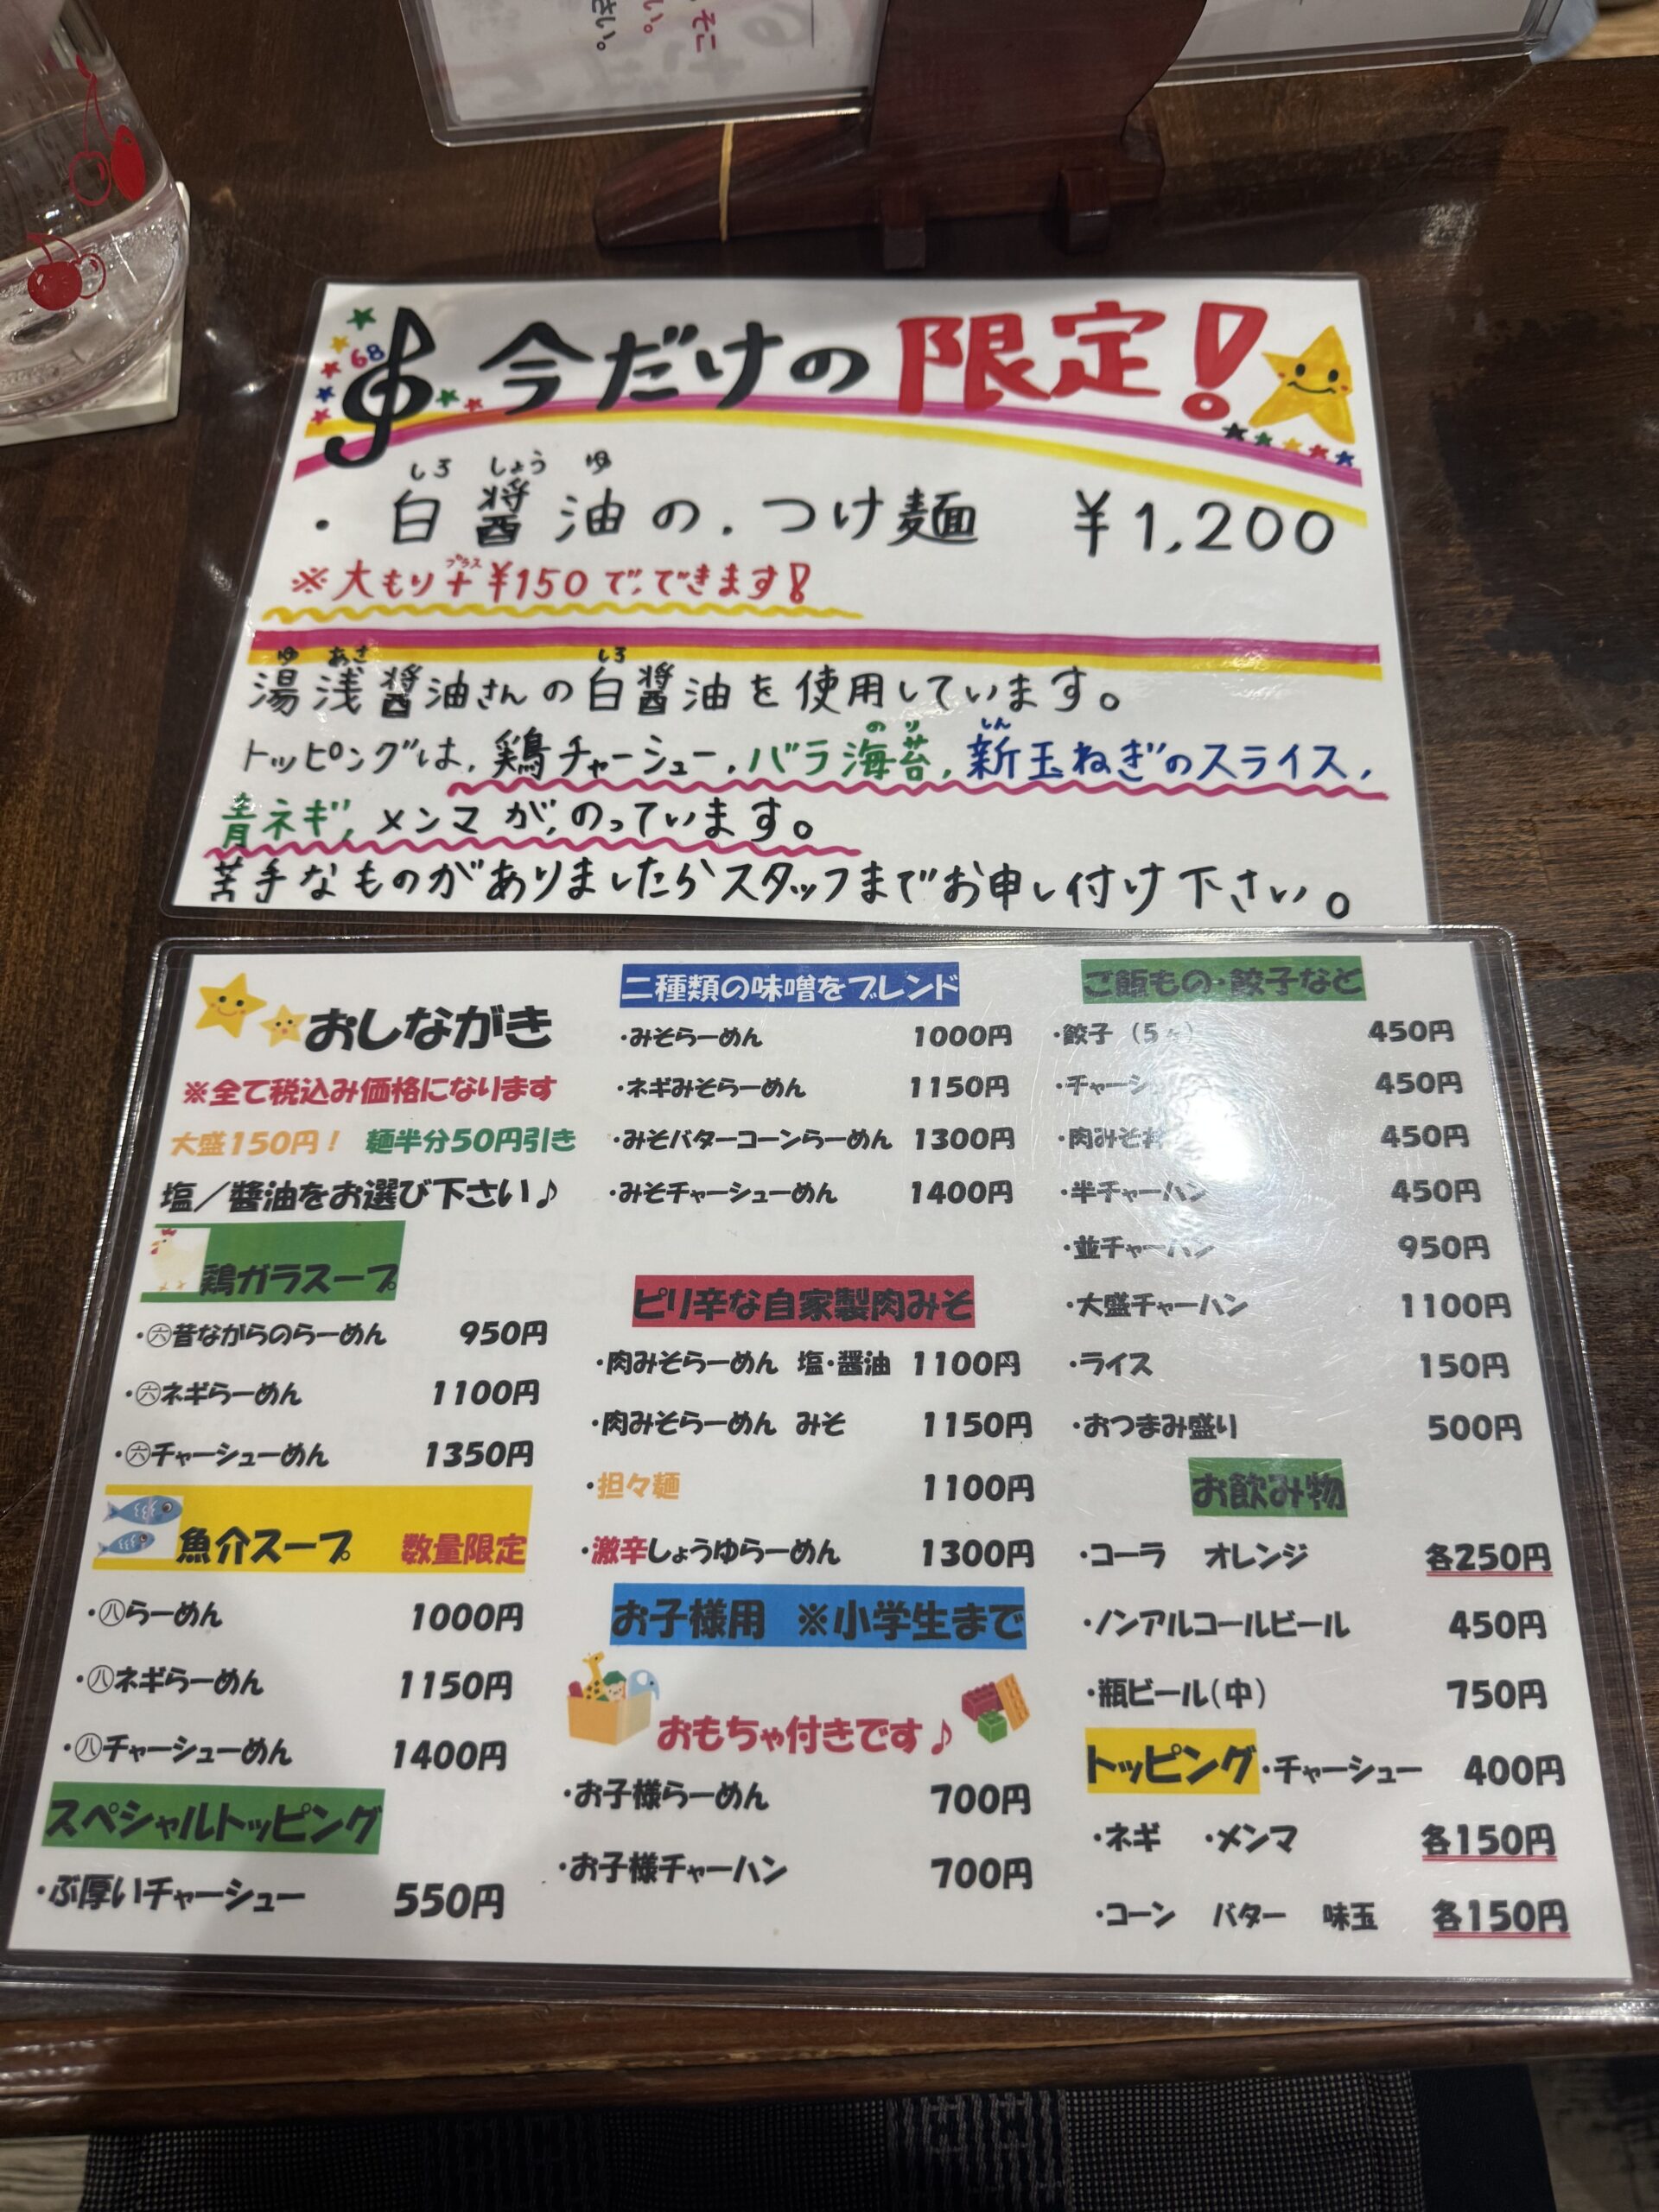 そこ
い。
さい。
68
今だけの限定!
しろ しょう ゆ
・白醤油の、つけ麺 ¥1,200
プラス
※大もり+¥150で、できます!
ゆ あさ しろ
湯浅醤油さんの白醤油を使用しています。
のり しん
トッピングは、鶏チャーシュー、バラ海苔、新玉ねぎのスライス、
青ネギ、メンマが、のっています。
苦手なものがありましたらスタッフまでお申し付け下さい。
おしながき
※全て税込み価格になります
大盛150円! 麺半分50円引き
塩/醬油をお選び下さい♪
鶏ガラスープ
・㊅昔ながらのらーめん 950円
・㊅ネギらーめん 1100円
・㊅チャーシューめん 1350円
魚介スープ 数量限定
・㊇らーめん 1000円
・㊇ネギらーめん 1150円
・㊇チャーシューめん 1400円
スペシャルトッピング
・ぶ厚いチャーシュー 550円
二種類の味噌をブレンド
・みそらーめん 1000円
・ネギみそらーめん 1150円
・みそバターコーンらーめん 1300円
・みそチャーシューめん 1400円
ピリ辛な自家製肉みそ
・肉みそらーめん 塩・醤油 1100円
・肉みそらーめん みそ 1150円
・担々麺 1100円
・激辛しょうゆらーめん 1300円
お子様用 ※小学生まで
おもちゃ付きです♪
・お子様らーめん 700円
・お子様チャーハン 700円
ご飯もの・餃子など
・餃子(5ヶ) 450円
・チャーシ 450円
・肉みそ丼 450円
・半チャーハン 450円
・並チャーハン 950円
・大盛チャーハン 1100円
・ライス 150円
・おつまみ盛り 500円
お飲み物
・コーラ オレンジ 各250円
・ノンアルコールビール 450円
・瓶ビール(中) 750円
トッピング ・チャーシュー 400円
・ネギ ・メンマ 各150円
・コーン バター 味玉 各150円